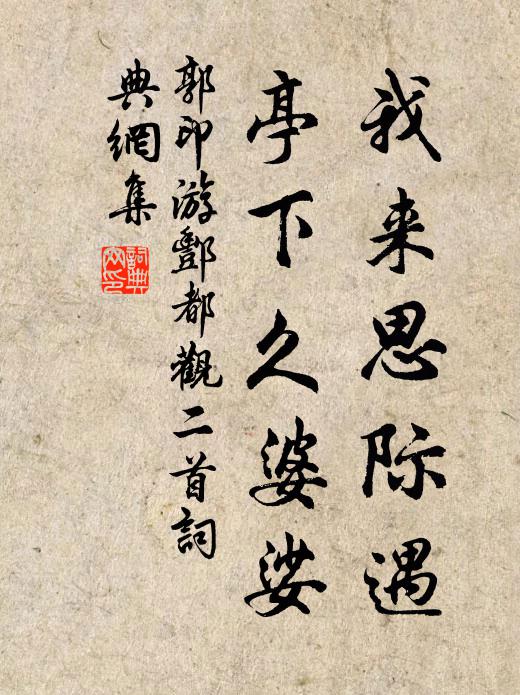 我来思际遇
亭下久婆娑
郭印游酆都觀二首詞
典網集
詞典